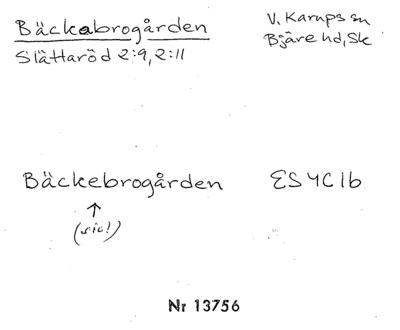 Bäckabrogården
V. Karups sn
Slättaröd 2:9, 2:11
Bjäre hd, Sk
Bäckebrogården
ES4C1b
↑
(sic!)
Nr 13756